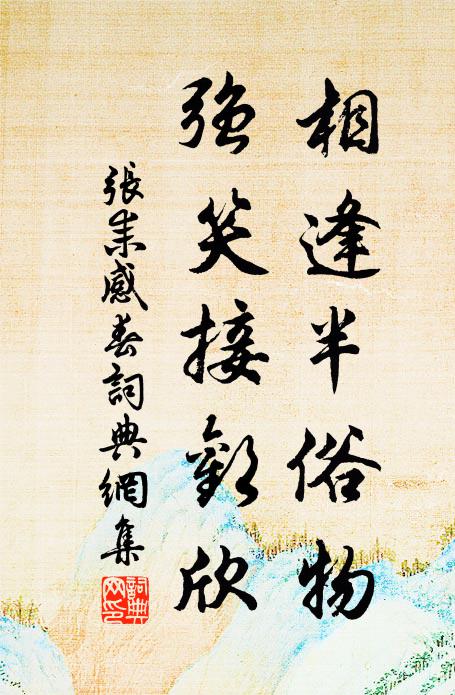 相逢半俗物
強笑接歡欣
張耒感春詞典網集
詞典網印